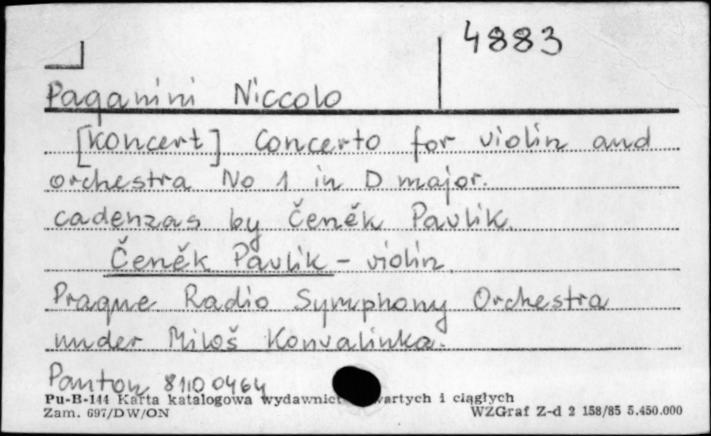 4883
Paganini Niccolo
[Koncert] Concerto for violin and
orchestra No 1 in D major.
cadenzas by Čeněk Pavlik.
Čeněk Pavlik - violin.
Prague Radio Symphony Orchestra
under Miloš Konvalinka.
Panton 8110 0464
Pu-B-144 Karta katalogowa wydawnict i ciągłych
Zam. 697/DW/ON WZGraf Z-d 2 158/85 5.450.000